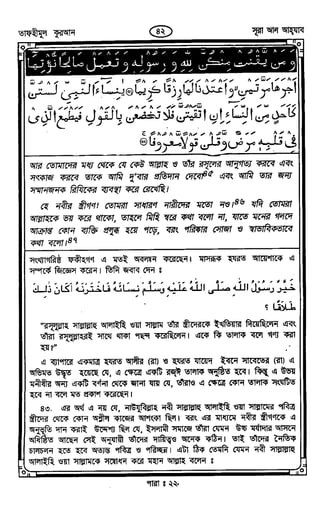 তাফহীমুল কুরআন
৪২
সূরা আল আহযাব
وَمَنْ يَّقْنُتْ مِنْكُنَّ لِلّٰهِ وَرَسُوْلِهٖ وَتَعْمَلْ صَالِحًا نُّؤْتِهَآ
اَجْرَهَا مَرَّتَيْنِ وَاَعْتَدْنَا لَهَا رِزْقًا كَرِيْمًا يٰنِسَآءَ النَّبِيِّ لَسْتُنَّ
كَاَحَدٍ مِّنَ النِّسَآءِ اِنِ اتَّقَيْتُنَّ فَلَا تَخْضَعْنَ بِالْقَوْلِ فَيَطْمَعَ الَّذِيْ
فِيْ قَلْبِهٖ مَرَضٌ وَّقُلْنَ قَوْلًا مَّعْرُوْفًا
আর তোমাদের মধ্য থেকে যে কেউ আল্লাহ ও তাঁর রসূলের আনুগত্য করবে এবং
সৎকাজ করবে তাকে আমি দু'বার প্রতিদান দেবো৪৫ এবং আমি তার জন্য
সম্মানজনক রিযিকের ব্যবস্থা করে রেখেছি।
হে নবীর স্ত্রীগণ! তোমরা সাধারণ নারীদের মতো নও।৪৬ যদি তোমরা
আল্লাহকে ভয় করে থাকো, তাহলে মিহি স্বরে কথা বলো না, যাতে মনের গলদে
আক্রান্ত কোন ব্যক্তি প্রলুব্ধ হয়ে পড়ে, বরং পরিষ্কার সোজা ও স্বাভাবিকভাবে
কথা বলো।৪৭
সংখ্যাগরিষ্ঠ ফকীহগণ এ মতই অবলম্বন করেছেন। মাসরূক হযরত আয়েশাকে এ
সম্পর্কে জিজ্ঞেস করেন। তিনি জবাব দেন :
خَيَّرَ رَسُوْلُ اللّٰهِ صَلَّى اللّٰهُ عَلَيْهِ وَسَلَّمَ نِسَائَهٗ فَاخْتَرْنَهٗ اَكَانَ ذٰلِكَ
طَلَاقًا ؟
"রসূলুল্লাহ সাল্লাল্লাহু আলাইহি ওয়া সাল্লাম তাঁর স্ত্রীদেরকে ইখতিয়ার দিয়েছিলেন এবং
তাঁরা রসূলুল্লাহরই সাথে থাকা পছন্দ করেছিলেন। একে কি তালাক বলে গণ্য করা
হয়?"
এ ব্যাপারে একমাত্র হযরত আলীর (রা) ও হযরত যায়েদ ইবনে সাবেতের (রা) এ
অভিমত উদ্ধৃত হয়েছে যে, এ ক্ষেত্রে একটি রজঈ তালাক অনুষ্ঠিত হবে। কিন্তু এ উভয়
মনীষীর অন্য একটি বর্ণনা থেকে জানা যায় যে, তাঁরাও এ ক্ষেত্রে কোন তালাক সংঘটিত
হবে না বলে মত প্রকাশ করেছেন।
৪৩. এর অর্থ এ নয় যে, নাউযুবিল্লাহ নবী সাল্লাল্লাহু আলাইহি ওয়া সাল্লামের পবিত্র
স্ত্রীদের থেকে কোন অশ্লীল কাজের আশংকা ছিল। বরং এর মাধ্যমে নবীর স্ত্রীগণকে এ
অনুভূতি দান করাই উদ্দেশ্য ছিল যে, ইসলামী সমাজে তাঁরা যেমন উচ্চ মর্যাদার আসনে
অধিষ্ঠিত আছেন সেই অনুযায়ী তাঁদের দায়িত্বও অনেক কঠিন। তাই তাঁদের নৈতিক
চালচলন হতে হবে অত্যন্ত পবিত্র ও পরিচ্ছন্ন। এটা ঠিক তেমনি যেমন নবী সাল্লাল্লাহু
আলাইহি ওয়া সাল্লামকে সম্বোধন করে মহান আল্লাহ বলেন :
পারা : ২২